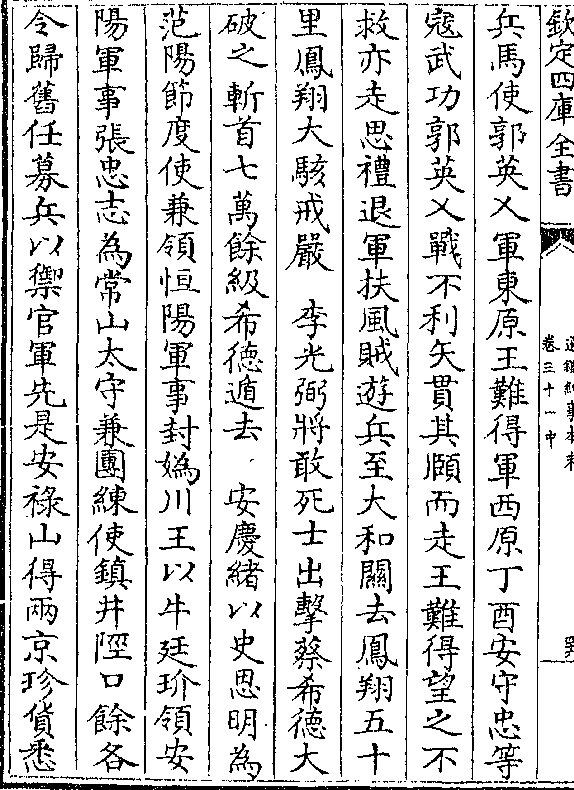 欽定四庫全書
卷三十一中
兵馬使郭英乂軍東原王難得軍西原丁酉安守忠等
寇武功郭英乂戰不利矢貫其頤而走王難得望之不
救亦走思禮退軍扶風賊遊兵至大和關去鳳翔五十
里鳳翔大駭戒嚴 李光弼將敢死士出擊蔡希德大
破之斬首七萬餘級希德遁去 安慶緒以史思明為
范陽節度使兼領恒陽軍事封媯川王以牛廷玠領安
陽軍事張忠志為常山太守兼團練使鎮井陘口餘各
令歸舊任募兵以禦官軍先是安祿山得兩京珍貨悉